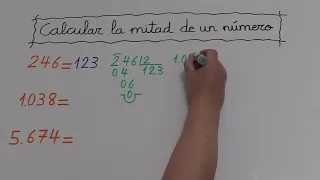 Calcular la mitad de un número
246=123
246 2
04 123
06
0
1.0
1.038=
5.674=